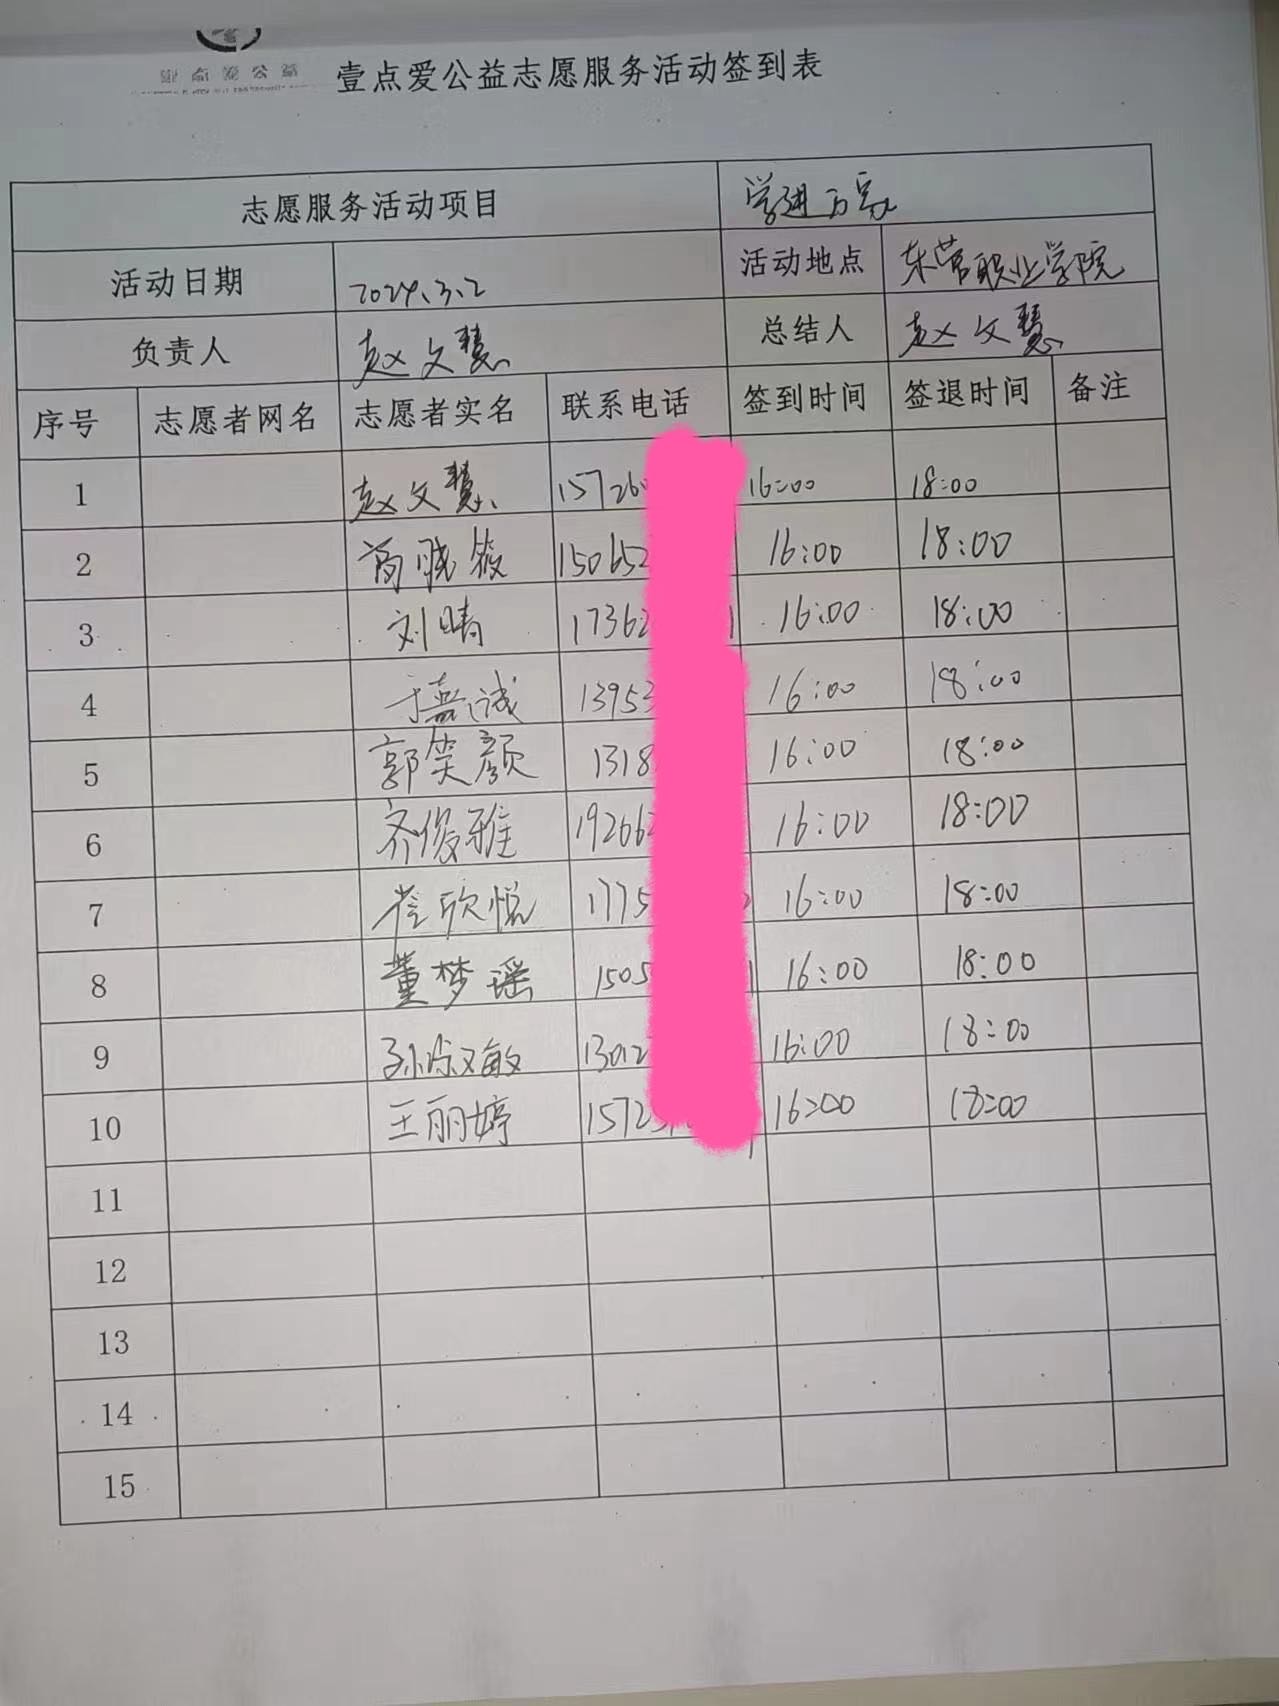 壹点爱公益志愿服务活动签到表
志愿服务活动项目 学进万家
活动日期 2024.3.2 活动地点 东营职业学院
负责人 赵文慧 总结人 赵文慧
序号 志愿者网名 志愿者实名 联系电话 签到时间 签退时间 备注
1 赵文慧 15726 16:00 18:00
2 晓筱 150652 16:00 18:00
3 刘晴 17362 16:00 18:00
4 于嘉诚 13953 16:00 18:00
5 郭笑颜 1318 16:00 18:00
6 齐俊雅 19266 16:00 18:00
7 崔欣悦 1775 16:00 18:00
8 董梦瑶 1505 16:00 18:00
9 孙淑敏 13012 16:00 18:00
10 王丽婷 1572 16:00 18:00
11
12
13
14
15